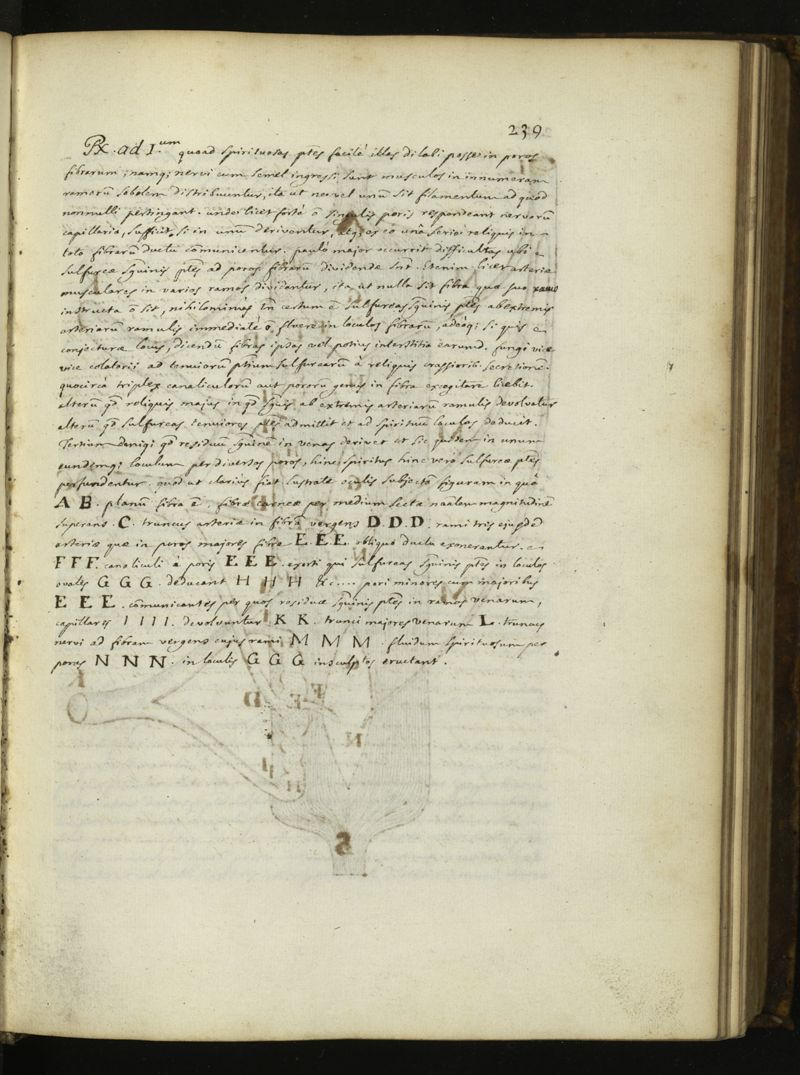 239
Rx. ad I.um quoad spirituosas ptes facilè illas dilabi posse in poros
fibrarum; namq; nervi cum semel ingressi sunt musculos in innumeram
ramorū sobolem distribuuntur, ita ut ne vel unū sit filamentum ad quod
nonnulli pertingant. unde licet fortè ō singulis poris respondeant nervorū
capillaria, sufficit si in unū deriventur, eo unâ serioi reliquis in
toto fibrarū ductu comunicentur. paulò major occurrit difficultas ubi
sulfureæ sguinis ptes ad poros fibrarū dividendæ snt. Etenim licet arteriæ
musculares in varios ramos dividantur, ita ut nulla sit fibra quæ suo ramo
instructa ō sit, nihilominùs tn certum ē sulfureas sguinis ptes ab extremis
arteriarū ramulis immediatè ō fluere in loculos fibrarū, adeoq; si quis ē
conjecturæ locus, dicendū fibras ipsas vel potius interstitia earund. fungi vice
vice colatorii ad tenuiorū ptium sulfurearū à reliquis crassiorib. secretionē.
quocircà triplex canaliculorū aut pororū genus in fibra excogitare licebit.
alterū qd reliquis majus in qd sguis ab extremis arteriarū ramulis devolvatur
alterū qd sulfureas tenuiores ptes admittit et ad spirituū loculos deducat.
Tertium deniq; qd residuū sguinē in venas derivet et sic quidem in unum
eundemq; loculum per diversos poros, hinc spiritus hinc verò sulfureæ ptes
perfundentur. quod ut clarius fiat lustrate oculis subjectā figuram in quâ
A B. planū fibræ ē, fibræ carneæ per medium sectæ naālem magnitudinē
superans. C. truncus arteriæ in fibrā vergens D. D. D. rami tris ejusdē
arteriæ quæ in poros majores fibræ E. E. E. obliquo ductu exonerantur.
F F F. canaliculi à poris E E E. exorti qui sulfureas sguinis ptes in loculos
ovales G G G. deducant H H H &c.... pori minores cum majoribus
E E E. comunicantes per quos residuæ sguinis ptes in ramos venarum,
capillares I I I I. devolvuntur. K K. trunci majores venarum L. truncus
nervi ad fibram vergens cujus rami M M M. fluidum spirituosum per
poros N N N. in loculis G G G insculptos eructant.